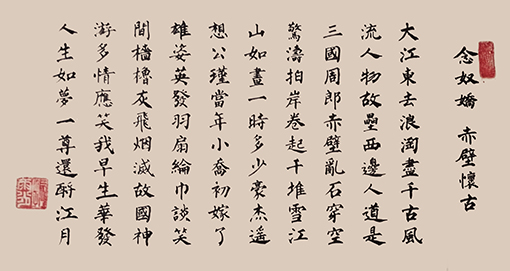 念奴嬌 赤壁懷古
大江東去浪淘盡千古風
流人物故壘西邊人道是
三國周郎赤壁亂石穿空
驚濤拍岸卷起千堆雪江
山如畫一時多少豪杰遙
想公瑾當年小喬初嫁了
雄姿英發羽扇綸巾談笑
間檣櫓灰飛烟滅故國神
游多情應笑我早生華發
人生如夢一尊還酹江月